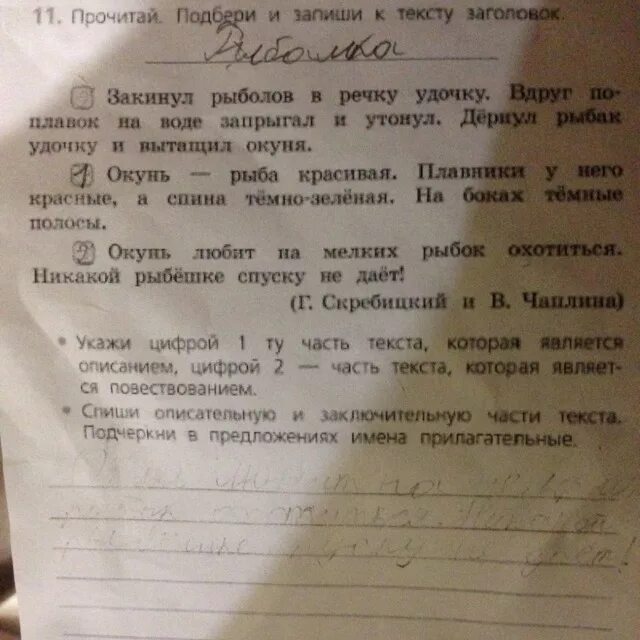 11. Прочитай. Подбери и запиши к тексту заголовок.
Рыбалка
Закинул рыболов в речку удочку. Вдруг по-
плавок на воде запрыгал и утонул. Дёрнул рыбак
удочку и вытащил окуня.
1 Окунь — рыба красивая. Плавники у него
красные, а спина тёмно-зелёная. На боках тёмные
полосы.
2 Окунь любит на мелких рыбок охотиться.
Никакой рыбёшке спуску не даёт!
(Г. Скребицкий и В. Чаплина)
• Укажи цифрой 1 ту часть текста, которая является
описанием, цифрой 2 — часть текста, которая являет-
ся повествованием.
• Спиши описательную и заключительную части текста.
Подчеркни в предложениях имена прилагательные.
любит на
охотиться. Никакой
спуску не даёт!